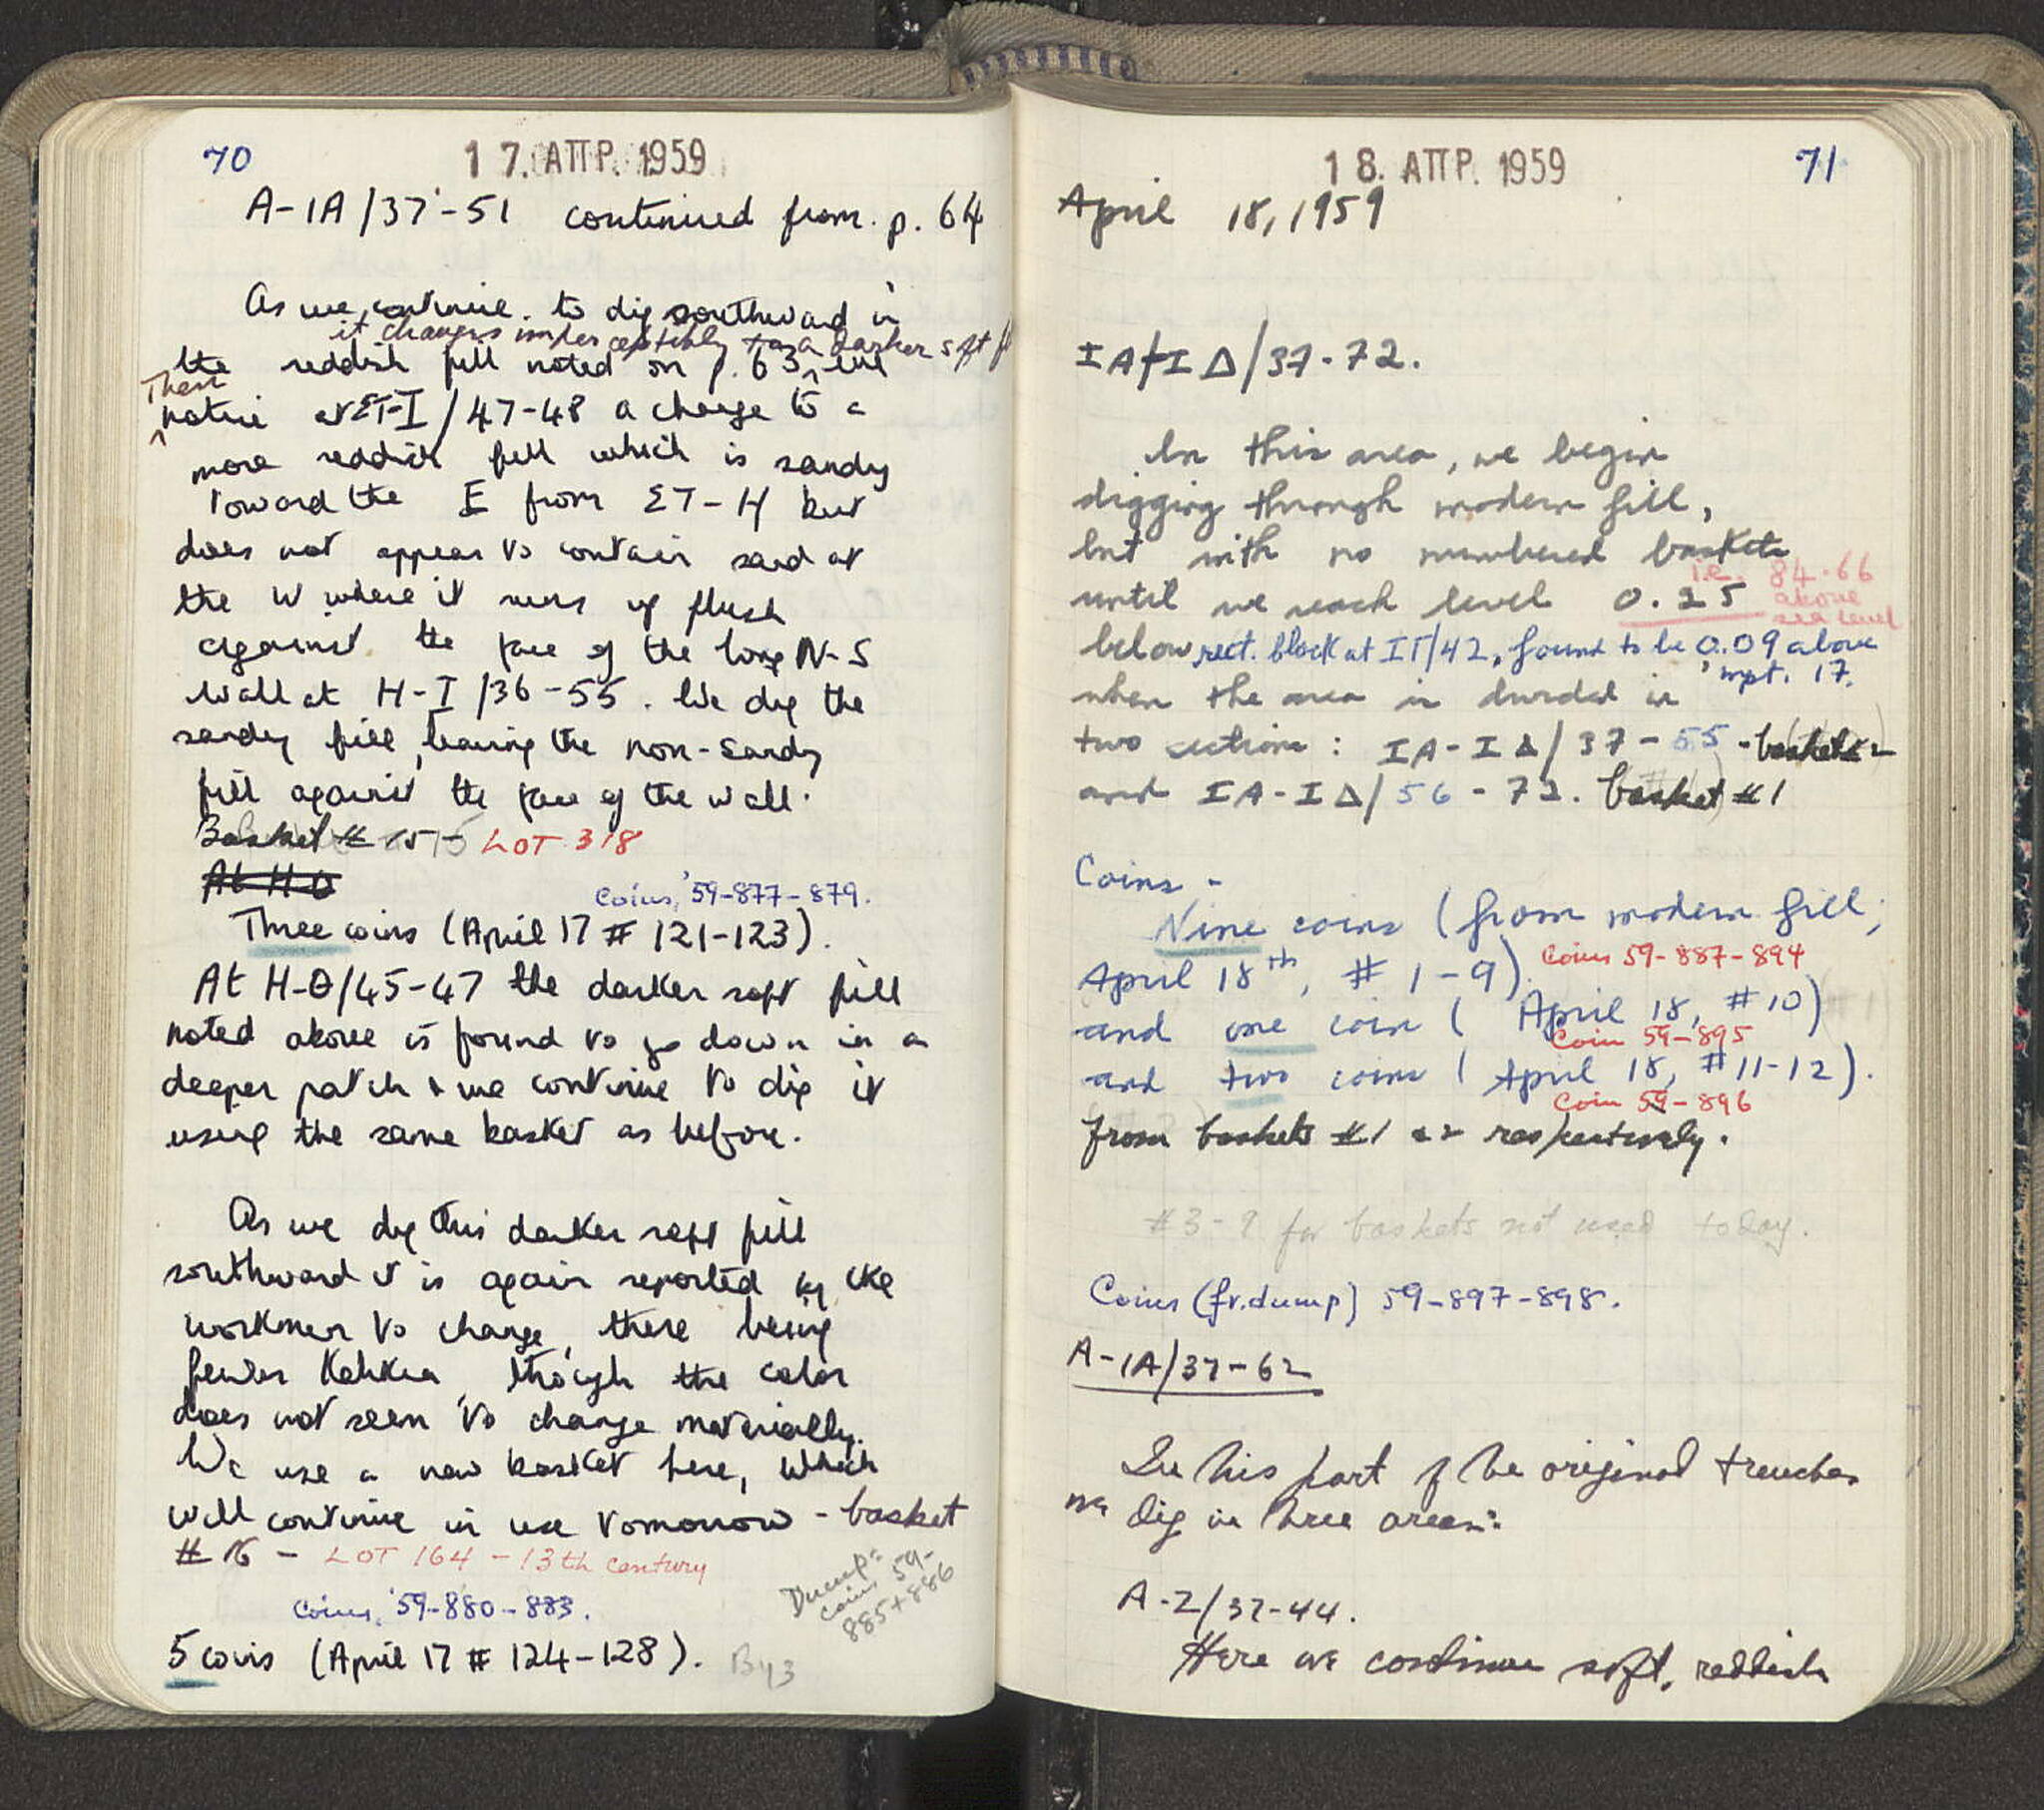 70
17. ΑΠΡ. 1959
A-1A/37-51 continued from p. 64
As we continue to dig southward in
it changes imperceptibly to a darker soft
the reddish fill noted on p. 63, we
Then
notice at ΣT-I/47-48 a change to a
more reddish fill which is sandy
toward the E from ΣT-H but
does not appear to contain sand at
the W where it runs up flush
against the face of the long N-S
wall at H-I/36-55. We dig the
sandy fill, leaving the non-sandy
fill against the face of the wall.
Basket # 15 - LOT 318
At H-Θ
Coins, '59-877-879.
Three coins (April 17 # 121-123).
At H-Θ/45-47 the darker soft fill
noted above is found to go down in a
deeper patch & we continue to dig it
using the same basket as before.
As we dig this darker soft fill
southward it is again reported by the
workmen to change, there being
fewer Kokkia, though the color
does not seem to change materially.
We use a new basket here, which
will continue in use tomorrow - basket
# 16 - LOT 164 - 13th century
Dump: coins 59-
885+886
Coins, '59-880-883.
5 coins (April 17 # 124-128). By 3
71
18. ΑΠΡ. 1959
April 18, 1959
IA-IΔ/37-72.
In this area, we begin
digging through modern fill,
but with no numbered baskets
i.e. 84.66
above
sea level
until we reach level 0.25
below rect. block at IΓ/42, found to be 0.09 above
mpt. 17.
when the area is divided in
two sections: IA-IΔ/37-55 - basket #2
and IA-IΔ/56-72. basket #1
Coins -
Nine coins (from modern fill;
Coins 59-887-894
April 18th, # 1-9)
and one coin (April 18, #10)
Coin 59-895
and two coins (April 18, #11-12).
Coin 59-896
from baskets #1 & 2 respectively.
#3-9 for baskets not used today.
Coins (fr. dump) 59-897-898.
A-1A/37-62
In this part of the original trenches
we dig in three areas:
A-Z/37-44.
Here we continue soft, reddish